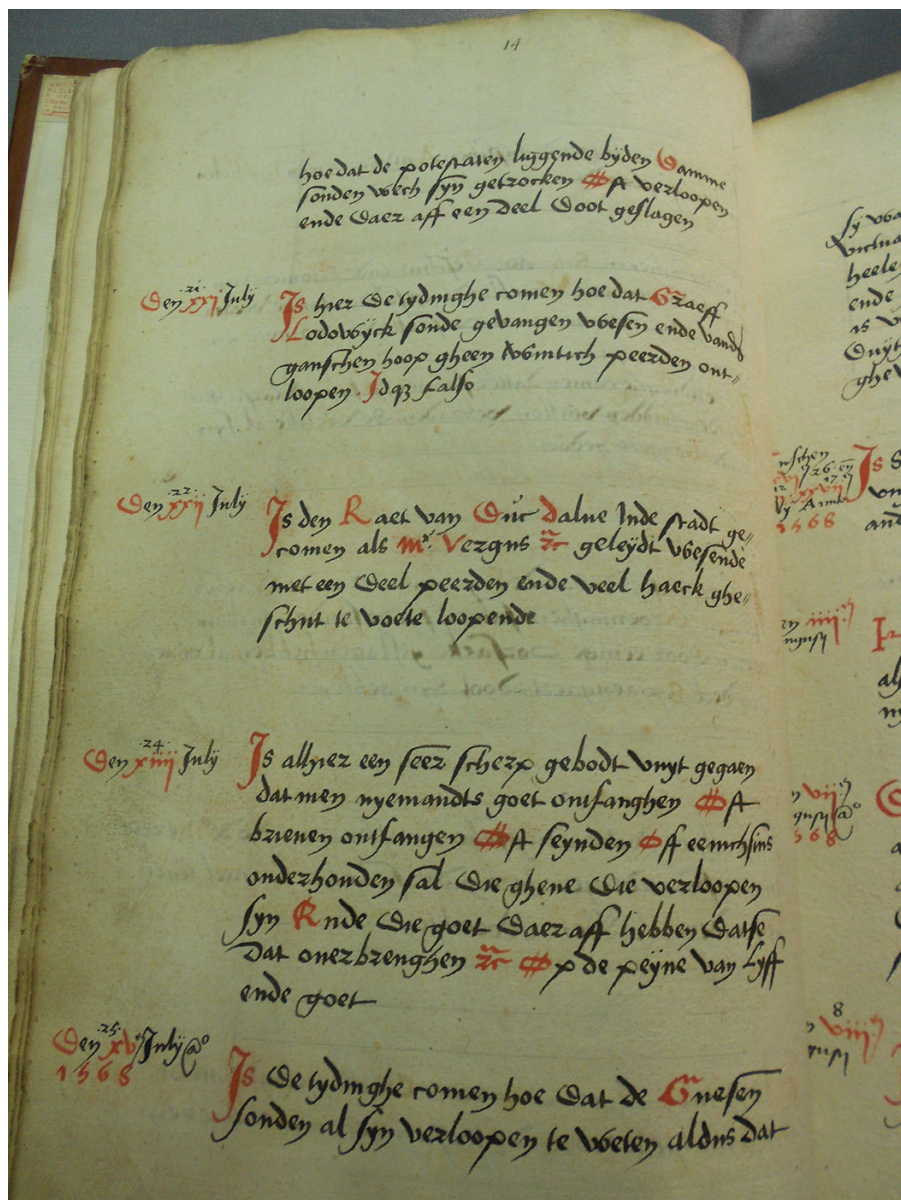 14
hoe dat de potestaten liggende byden Damme
souden wech syn getrocken Oft verloopen
ende daer aff een deel doot geslagen
21
Den xxj July
Is hier de tydinghe comen hoe dat Graeff
Lodowyck soude gevangen wesen ende vande
ganschen hoop gheen twintich peerden ont=
loopen. Idqz falso
22
Den xxij July
Is den Raet van Duc Dalue Inde stadt ge=
comen als Mr. Vergus etc geleydt wesende
met een deel peerden ende veel haeck ghe=
schut te voete loopende
.24.
Den xiiij July
Is alhier een seer scherp gebodt vuyt gegaen
dat men nyemandts goet ontfanghen Oft
brieuen ontfangen Oft seynden Off eenichsins
onderhouden sal die ghene die verloopen
syn Ende die goet daer aff hebben datse
dat ouerbrenghen etc Op de peyne van Lyff
ende goet
.25.
Den xv July Ao
1568
Is de tydinghe comen hoe dat de Guesen
souden al syn verloopen te weten aldus dat
heele
ende
ghe
26 en
xxvij
Anno
1568
Is
8
viij